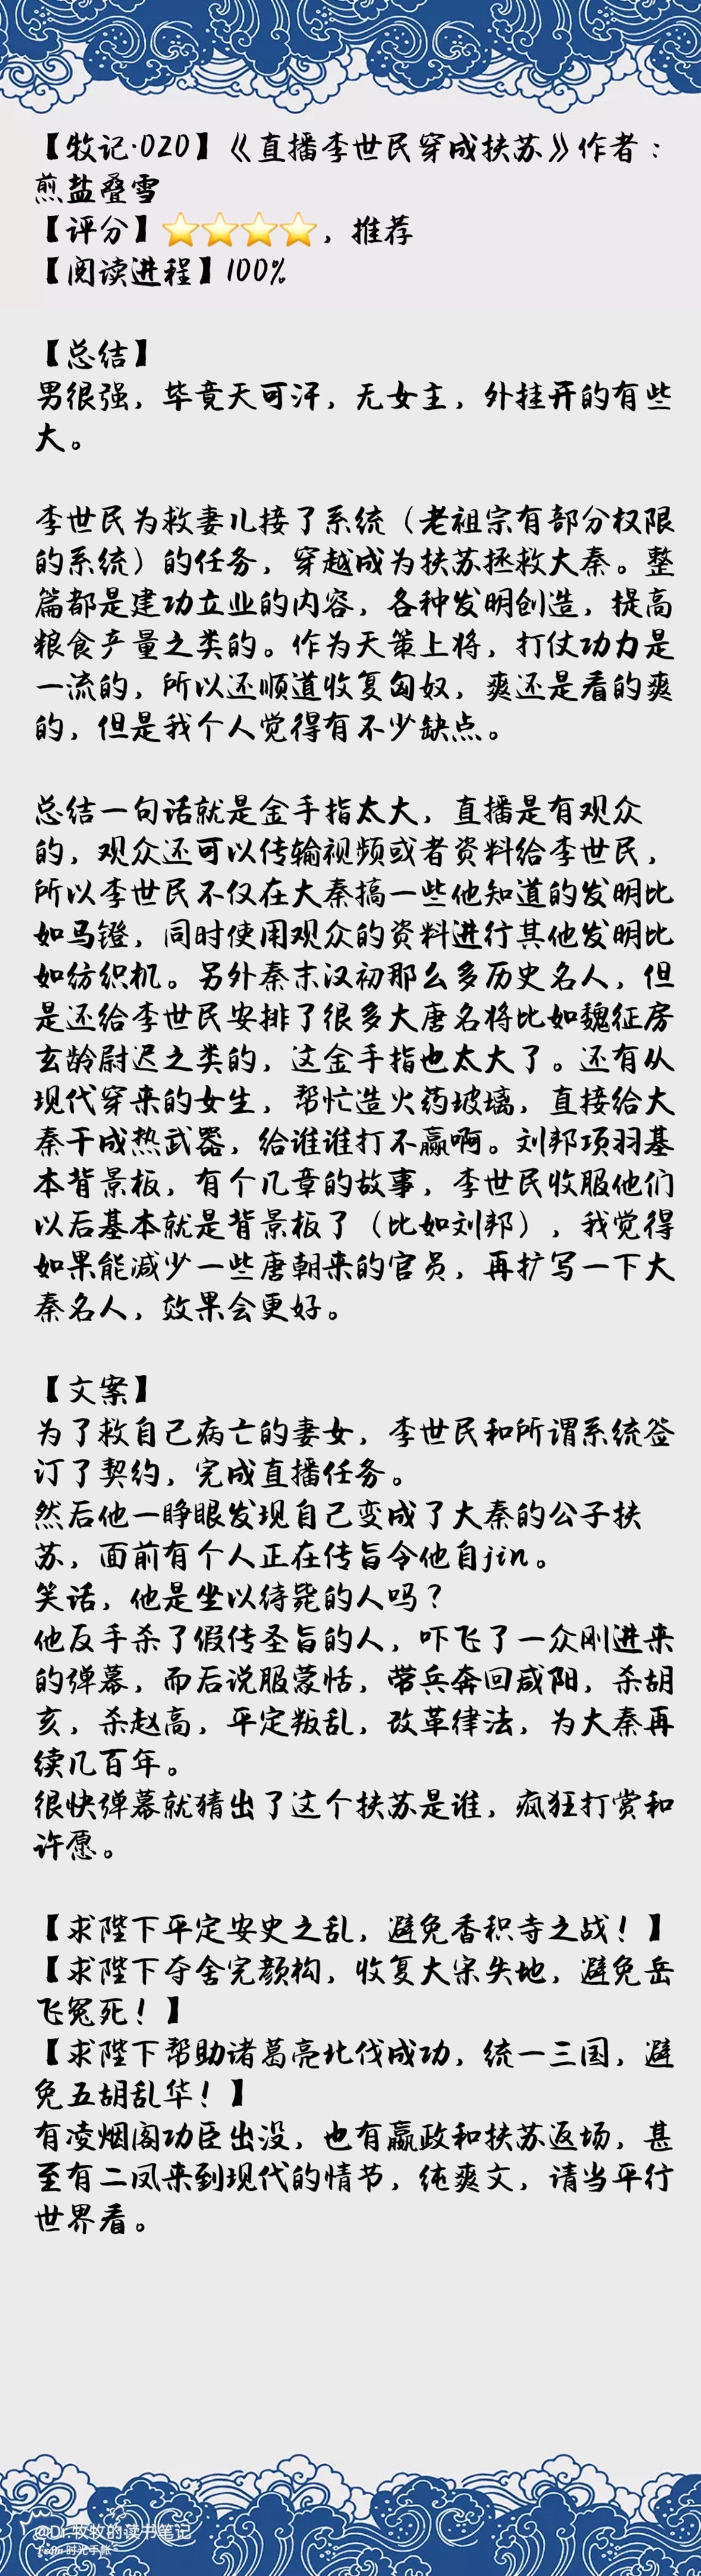 【牧记·020】《直播李世民穿成扶苏》作者：
煎盐叠雪
【评分】⭐⭐⭐⭐，推荐
【阅读进程】100%
【总结】
男很强，毕竟天可汗，无女主，外挂开的有些
大。
李世民为救妻儿接了系统（老祖宗有部分权限
的系统）的任务，穿越成为扶苏拯救大秦。整
篇都是建功立业的内容，各种发明创造，提高
粮食产量之类的。作为天策上将，打仗功力是
一流的，所以还顺道收复匈奴，爽还是看的爽
的，但是我个人觉得有不少缺点。
总结一句话就是金手指太大，直播是有观众
的，观众还可以传输视频或者资料给李世民，
所以李世民不仅在大秦搞一些他知道的发明比
如马镫，同时使用观众的资料进行其他发明比
如纺织机。另外秦末汉初那么多历史名人，但
是还给李世民安排了很多大唐名将比如魏征房
玄龄尉迟之类的，这金手指也太大了。还有从
现代穿来的女生，帮忙造火药玻璃，直接给大
秦干成热武器，给谁谁打不赢啊。刘邦项羽基
本背景板，有个几章的故事，李世民收服他们
以后基本就是背景板了（比如刘邦），我觉得
如果能减少一些唐朝来的官员，再扩写一下大
秦名人，效果会更好。
【文案】
为了救自己病亡的妻女，李世民和所谓系统签
订了契约，完成直播任务。
然后他一睁眼发现自己变成了大秦的公子扶
苏，面前有个人正在传旨令他自jin。
笑话，他是坐以待毙的人吗？
他反手杀了假传圣旨的人，吓飞了一众刚进来
的弹幕，而后说服蒙恬，带兵奔回咸阳，杀胡
亥，杀赵高，平定叛乱，改革律法，为大秦再
续几百年。
很快弹幕就猜出了这个扶苏是谁，疯狂打赏和
许愿。
【求陛下平定安史之乱，避免香积寺之战！】
【求陛下夺舍完颜构，收复大宋失地，避免岳
飞冤死！】
【求陛下帮助诸葛亮北伐成功，统一三国，避
免五胡乱华！】
有凌烟阁功臣出没，也有嬴政和扶苏返场，甚
至有二凤来到现代的情节，纯爽文，请当平行
世界看。
@Dr.牧牧的读书笔记
时光手帐